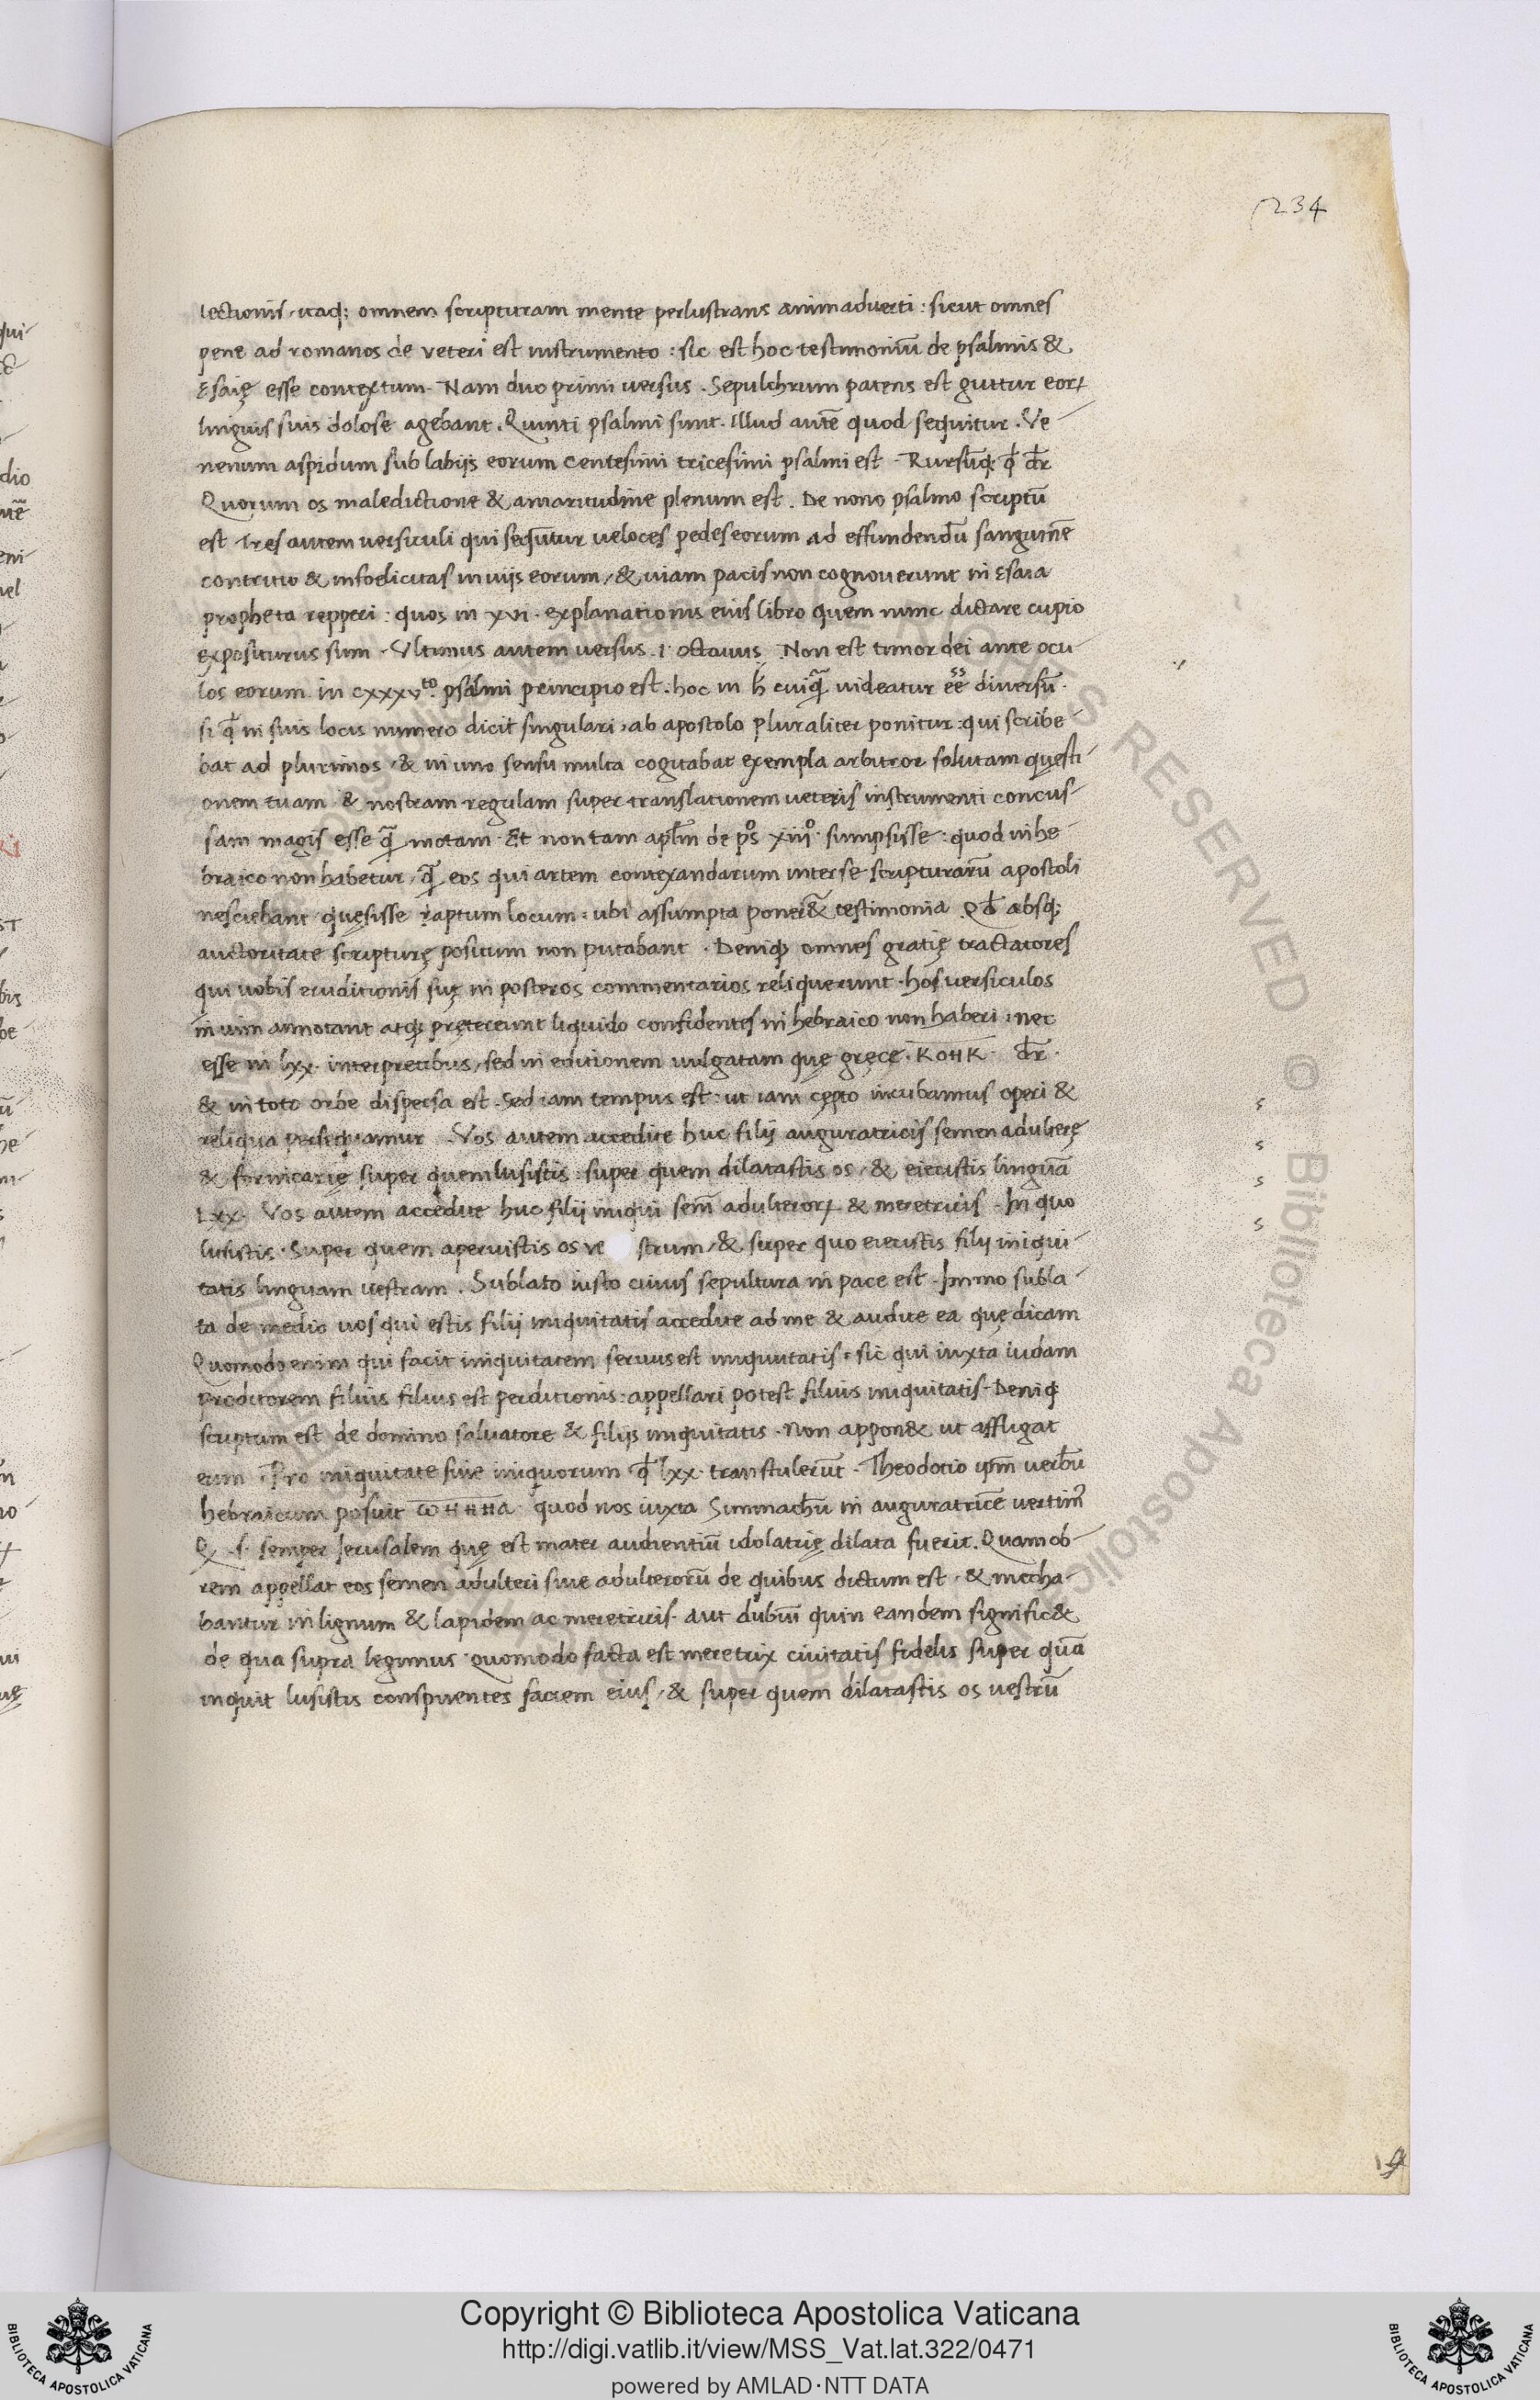 234
lectionis, itaq; omnem scripturam mente perlustrans animadverti: sicut omnes
pene ad romanos de veteri est instrumento: sic est hoc testimoniū de psalmis &
Esaię esse contextum. Nam duo primi versus. Sepulchrum patens est guttur eoꝝ
linguis suis dolose agebant. Quinti psalmi sunt. Illud autē quod sequitur. Ve-
nenum aspidum sub labijs eorum centesimi tricesimi psalmi est. Rursūq; qđ dr̄
Quorum os maledictione & amaritudine plenum est. De nono psalmo scriptū
est Tres autem versiculi qui sequūtur veloces pedes eorum ad effundendū sanguinē
contritio & infoelicitas in viis eorum, & uiam pacis non cognoverunt in Esaia
propheta repperi: quos in xvi. explanationis eius libro quem nunc dictare cupio
expositurus sum. Vltimus autem versus .i. octavus Non est timor dei ante ocu-
los eorum in cxxxvto psalmi principio est. hoc in h̄ cuiq̄ uideatur eē diversū.
si qđ in suis locis numero dicit singulari, ab apostolo pluraliter ponitur: qui scribe-
bat ad plurimos, & in uno sensu multa cogitabat exempla arbitror solutam quęsti-
onem tuam & nostram regulam super translationem ueteris instrumenti concus-
sam magis esse q̄ motam. Et non tam apłm de pso xiiio sumpsisse: quod in he-
braico non habetur, q̄ eos qui artem contexandarum inter se scripturarū apostoli
nesciebant quęsisse raptum locum: ubi assumpta poner& testimonia Qđ absq;
auctoritate scripturę positum non putabant. Deniq; omnes gratię tractatores
qui uobis eruditionis suę in posteros commentarios reliquerunt. hos versiculos
in uim annotant atq; pretereunt liquido confidentes in hebraico non haberi: nec
esse in lxx. interpretibus, sed in editionem uulgatam quę gręce. KOHK dr̄.
& in toto orbe dispersa est. Sed iam tempus est: ut iam cępto incubamus operi &
reliqua persequamur. Vos autem accedite huc filij auguratricis semen adulterę
& fornicarię super quem lusistis: super quem dilatastis os, & eiecistis linguā
Lxx. Vos autem accedite huc filij iniqui sem̄ adulteroꝝ & meretricis. In quo
lusistis. Super quem aperuistis os ve strum, & super quo eiecistis filij iniqui-
tatis linguam vestram. Sublato iusto cuius sepultura in pace est. Immo subla-
ta de medio uos qui estis filij iniquitatis accedite ad me & audite ea quę dicam
Quomodo enim qui facit iniquitatem servus est iniquitatis: sic qui iuxta iudam
proditorem filius filius est perditionis: appellari potest filius iniquitatis. Deniq;
scriptum est de domino salvatore & filijs iniquitatis. Non appon& ut affligat
eum. Pro iniquitate siue iniquorum qđ lxx. transtulerūt. Theodotio ipm̄ verbū
hebraicum posuit ωHHHa quod nos iuxta Simmachū in auguratricē vertim9
Q .s. semper Jerusalem quę est mater audientiū idolatrię dilata fuerit. Quam ob-
rem appellat eos semen adulteri siue adulterorū de quibus dictum est. & mecha-
bantur in lignum & lapidem ac meretricis. aut dubiū quin eandem signific&
de qua supra legimus. quomodo facta est meretrix civitatis fidelis super quā
inquit lusistis conspuentes faciem eius, & super quem dilatastis os vestrū
Copyright © Biblioteca Apostolica Vaticana
http://digi.vatlib.it/view/MSS_Vat.lat.322/0471
powered by AMLAD·NTT DATA